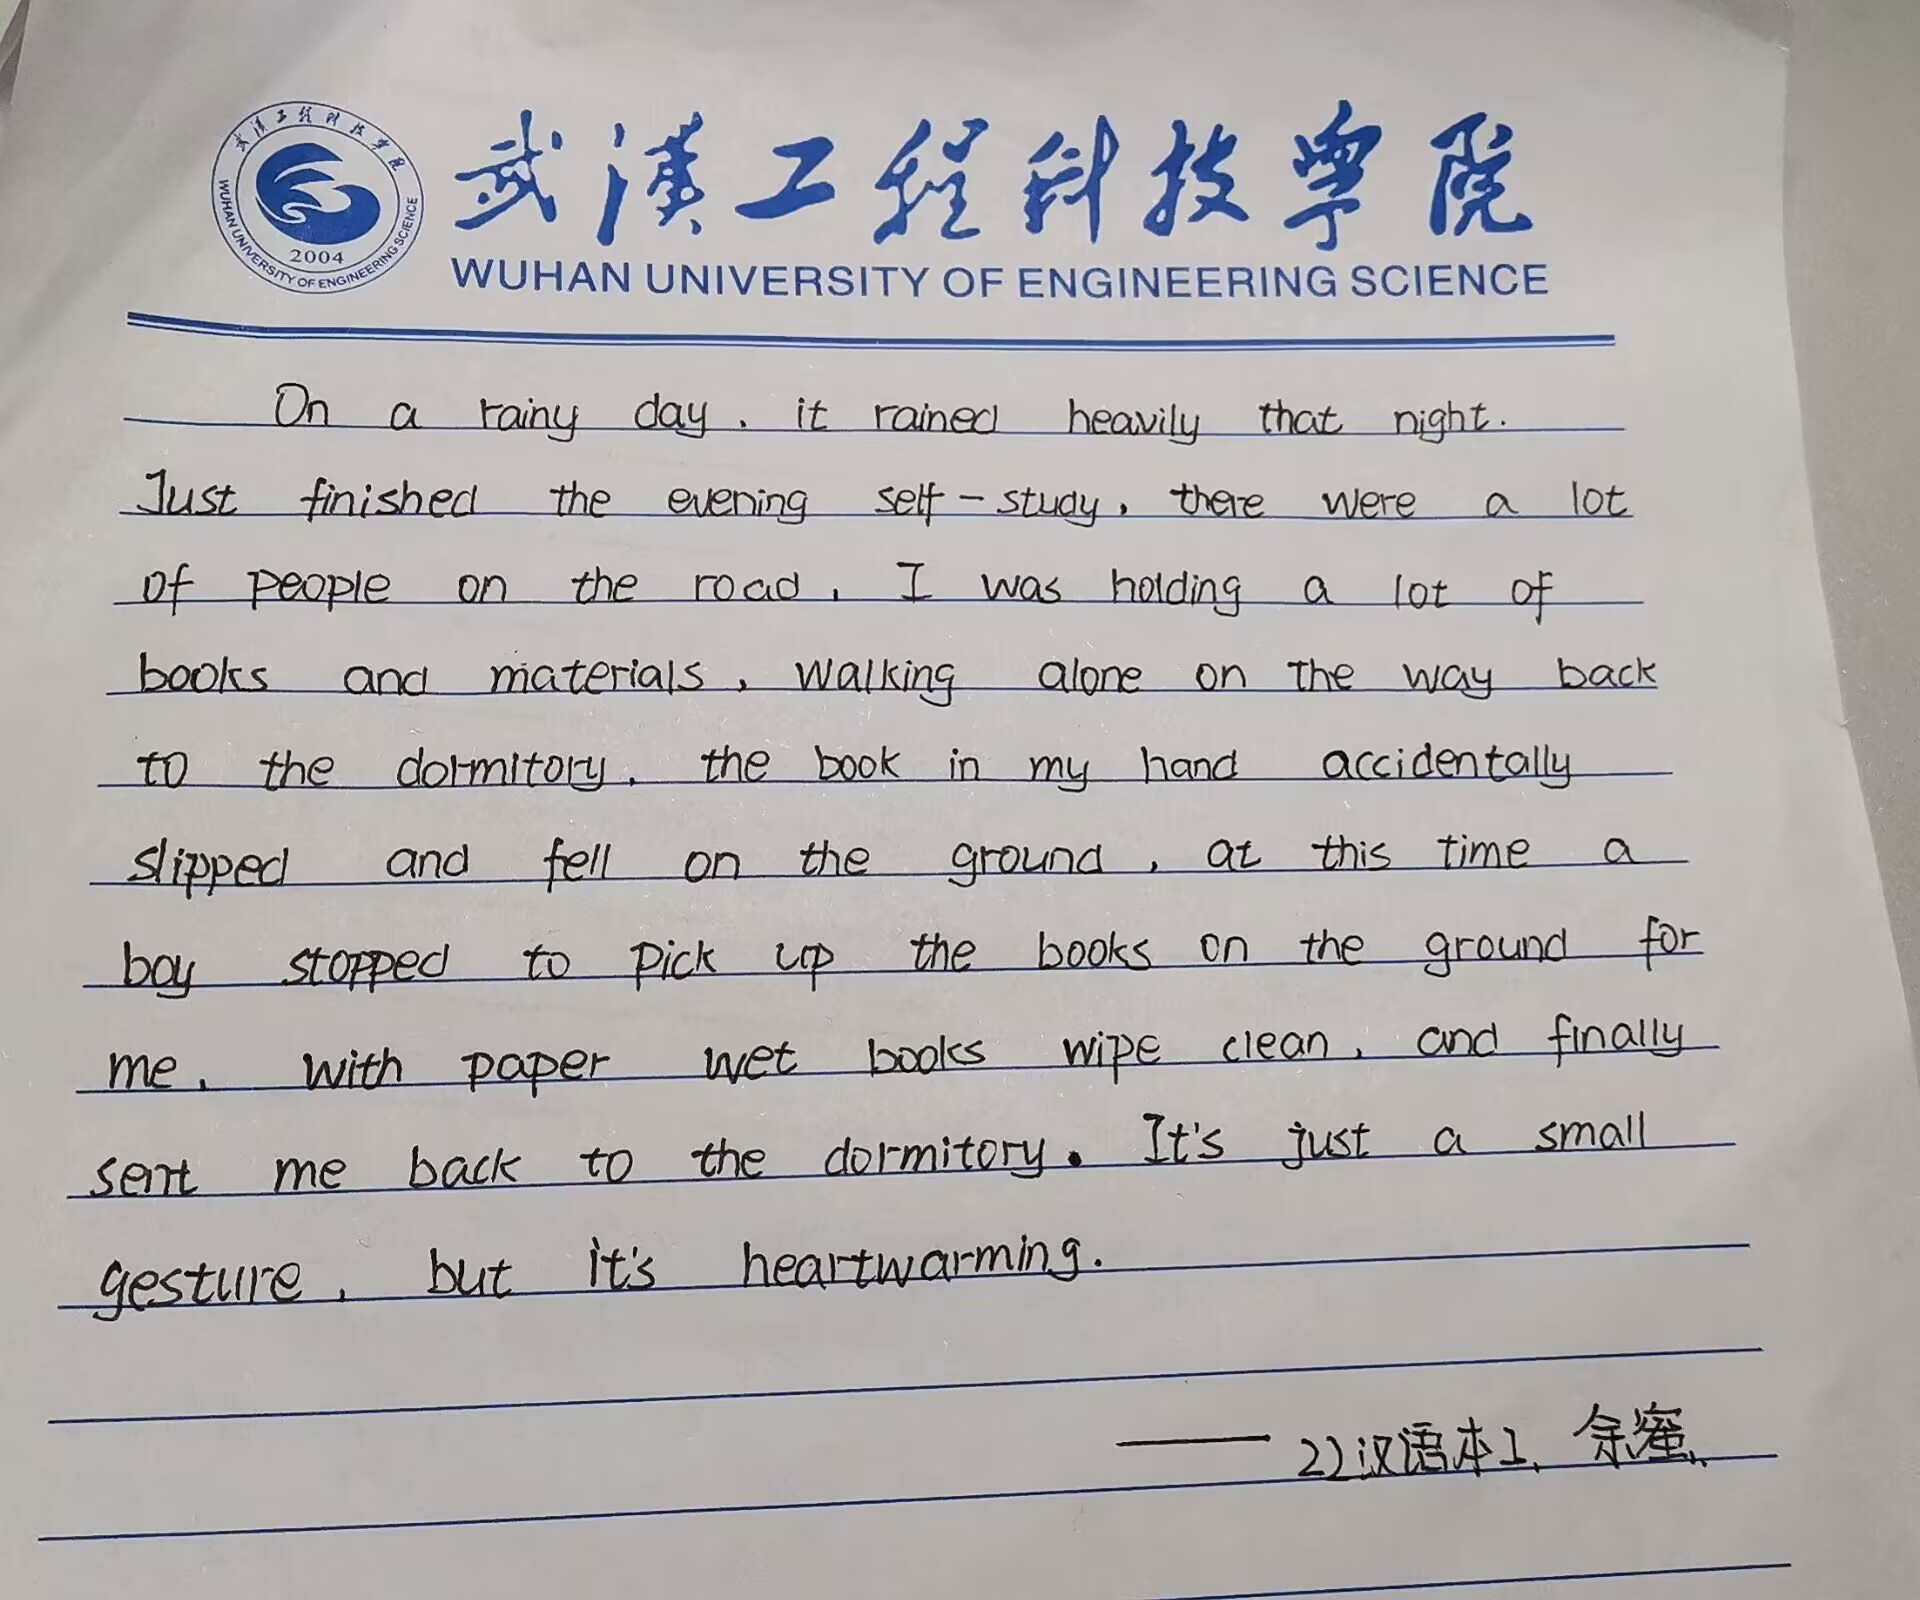 武漢工程科技學院
WUHAN UNIVERSITY OF ENGINEERING SCIENCE
武漢工程科技學院
2004
WUHAN UNIVERSITY OF ENGINEERING SCIENCE
On a rainy day, it rained heavily that night.
Just finished the evening self-study, there were a lot
of people on the road, I was holding a lot of
books and materials, walking alone on the way back
to the dormitory, the book in my hand accidentally
slipped and fell on the ground, at this time a
boy stopped to pick up the books on the ground for
me, with paper wet books wipe clean, and finally
sent me back to the dormitory. It's just a small
gesture, but it's heartwarming.
—— 22汉语本1, 余蜜,